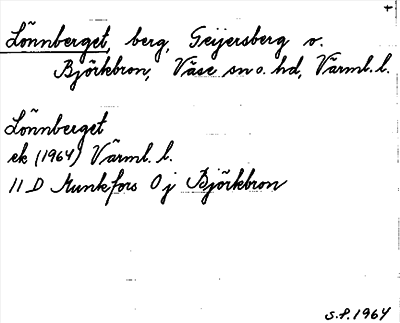 Lönnberget, berg, Geijersberg o.
Björkbron, Väse sn o. hd, Värml. l.
Lönnberget
ek (1964) Värml. l.
11 D Munkfors 0 j Björkbron
S.P. 1964